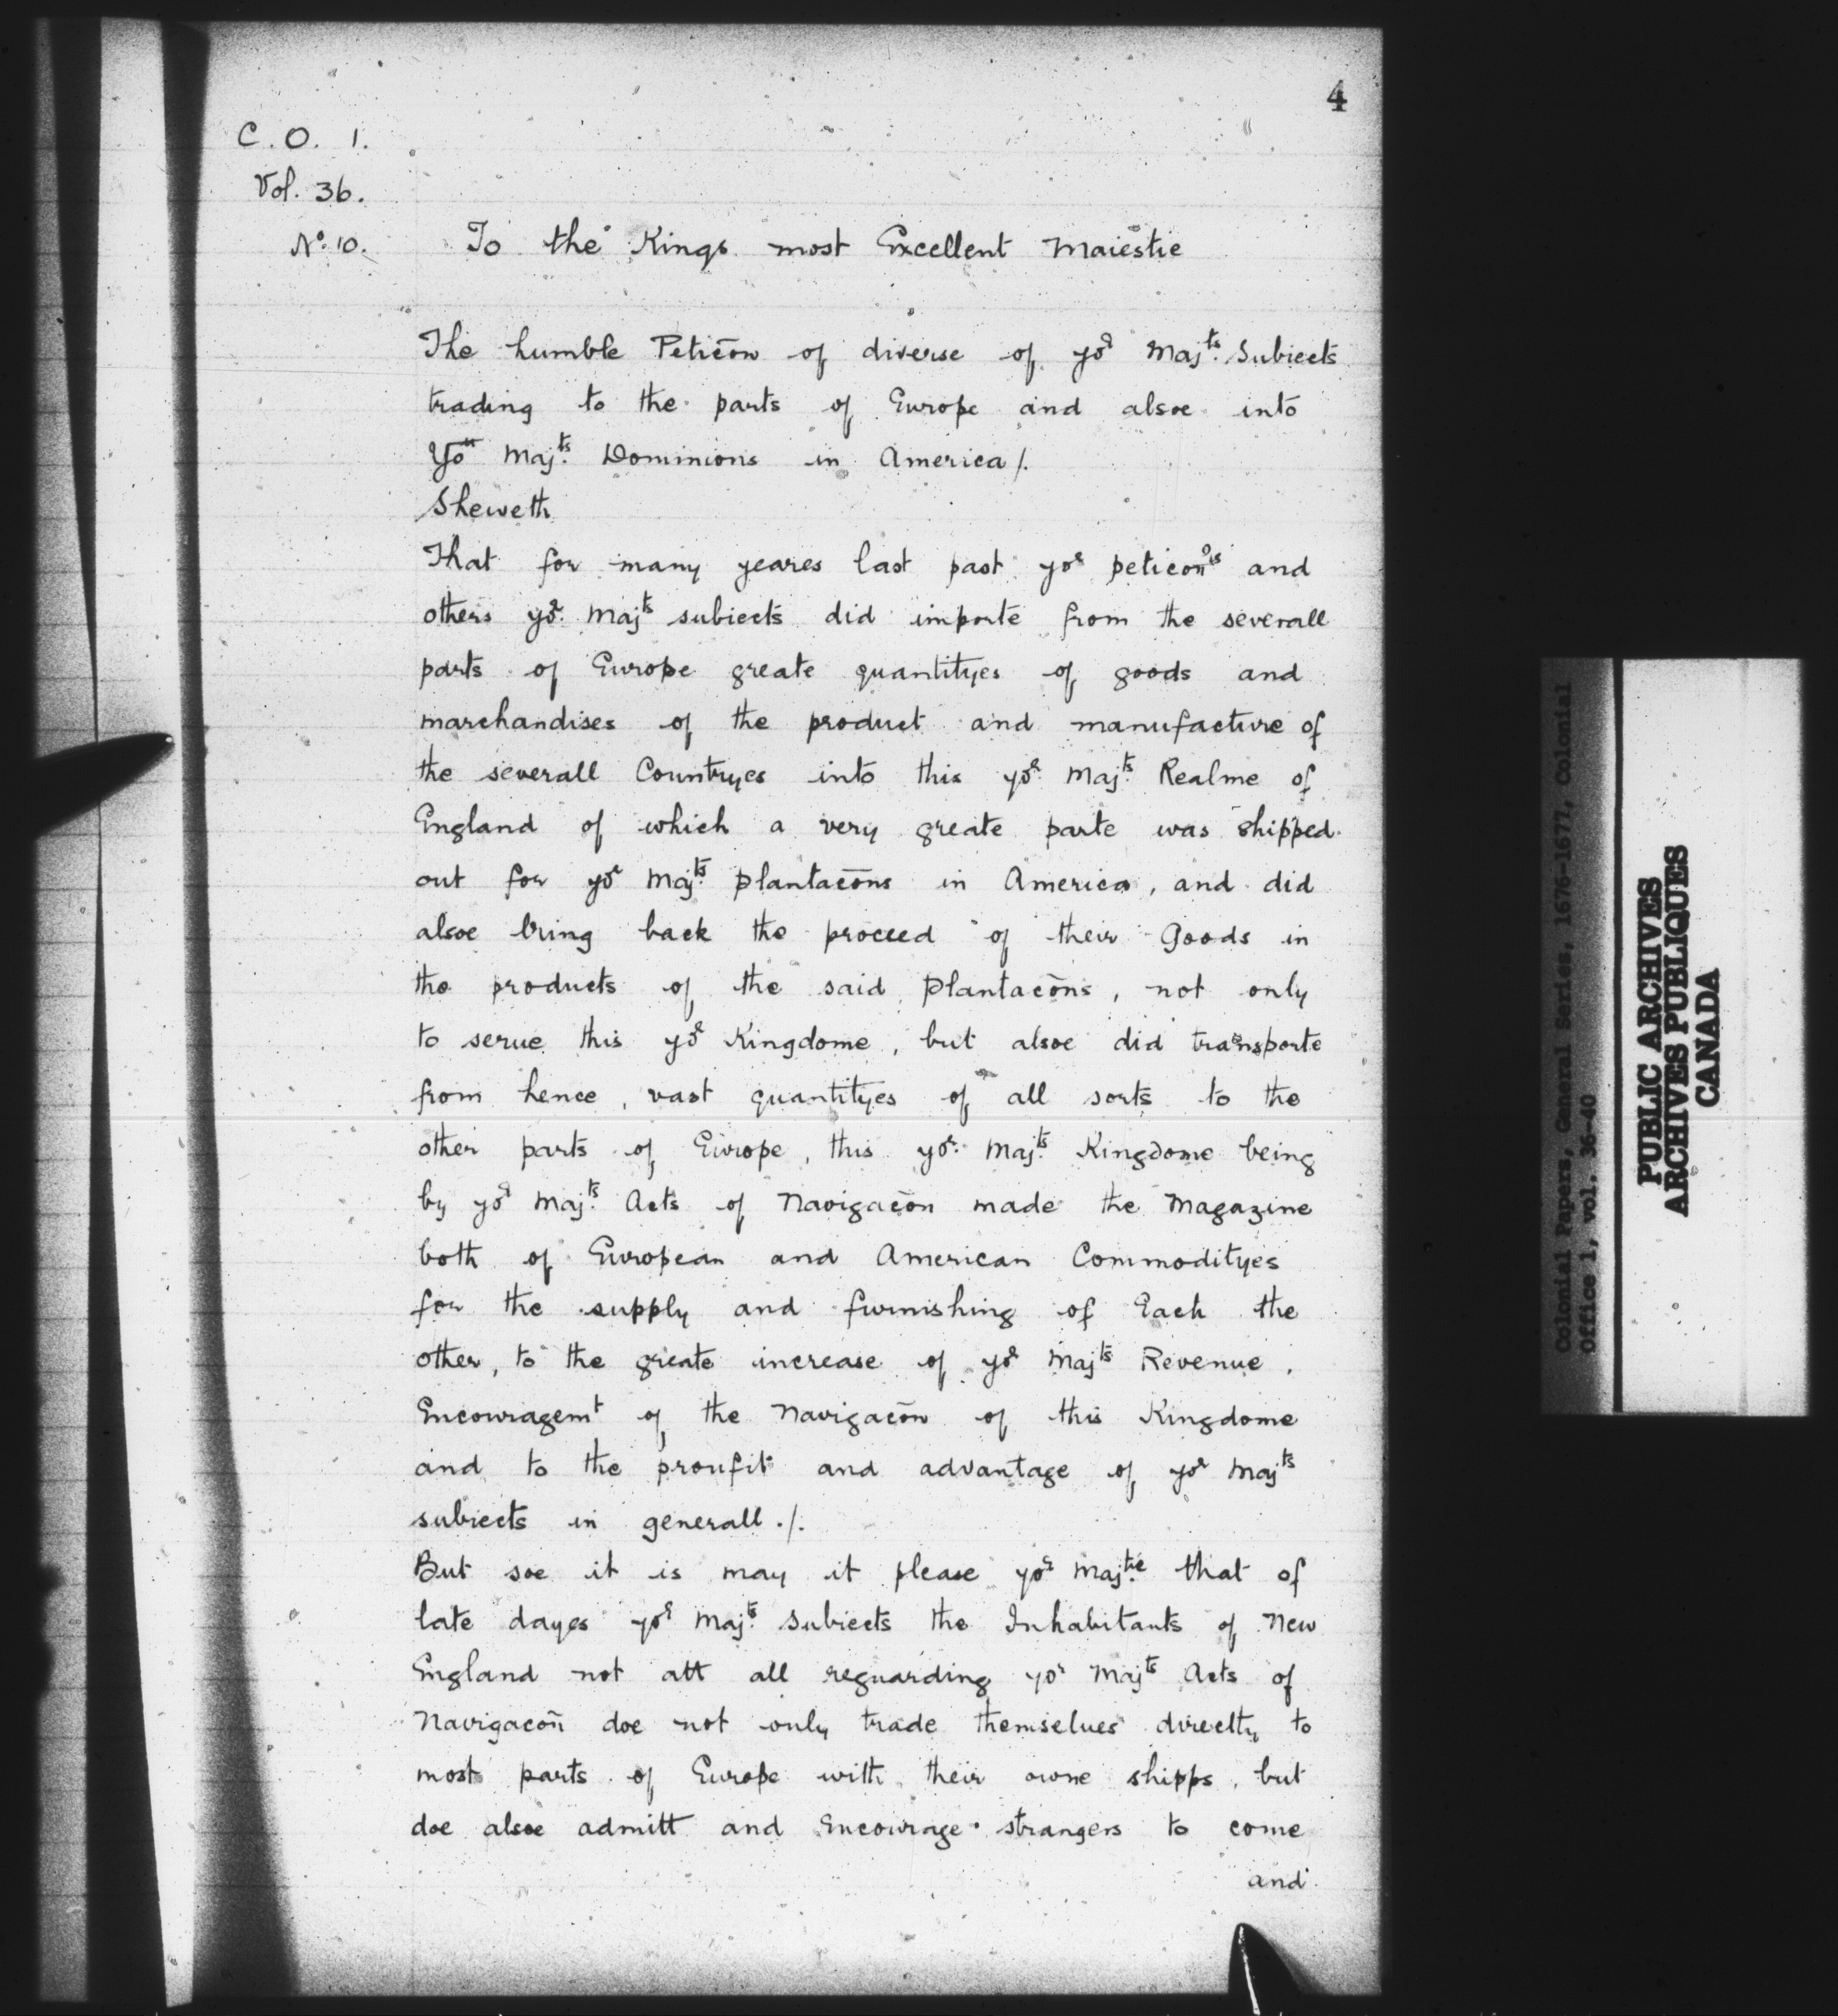 4
C. O. 1.
Vol. 36.
No. 10.
To the Kings most Excellent Maiestie
The humble Peticōn of diverse of yor Majts. Subiects
trading to the parts of Europe and alsoe into
Yor Majts. Dominions in America /.
Sheweth
That for many yeares last past yor peticonrs and
others yor. Majts subiects did importe from the severall
parts of Europe greate quantityes of goods and
marchandises of the product and manufacture of
the severall Countryes into this yor. Majts. Realme of
England of which a very greate parte was shipped
out for yor Majts. plantacōns in America, and did
alsoe bring back the proceed of their Goods in
the products of the said plantacōns, not only
to serue this yor Kingdome, but alsoe did transporte
from hence, vast quantityes of all sorts to the
other parts of Europe, this yor. Majts. Kingdome being
by yor Majts. Acts of Navigacōn made the Magazine
both of European and American Commodityes
for the supply and furnishing of Each the
other, to the greate increase of yor Majts Revenue,
Encouragemt of the Navigacōn of this Kingdome
and to the proufit and advantage of yor Majts
subiects in generall ./.
But soe it is may it please yor Majtie. that of
late dayes yor Majts. Subiects the Inhabitants of New
England not att all reguarding yor Majts Acts of
Navigacōn doe not only trade themselues directly to
most parts of Europe with their owne shipps, but
doe alsoe admitt and Encourage strangers to come
and
Colonial Papers, General Series, 1676-1677, Colonial
Office 1, vol. 36-40
PUBLIC ARCHIVES
ARCHIVES PUBLIQUES
CANADA